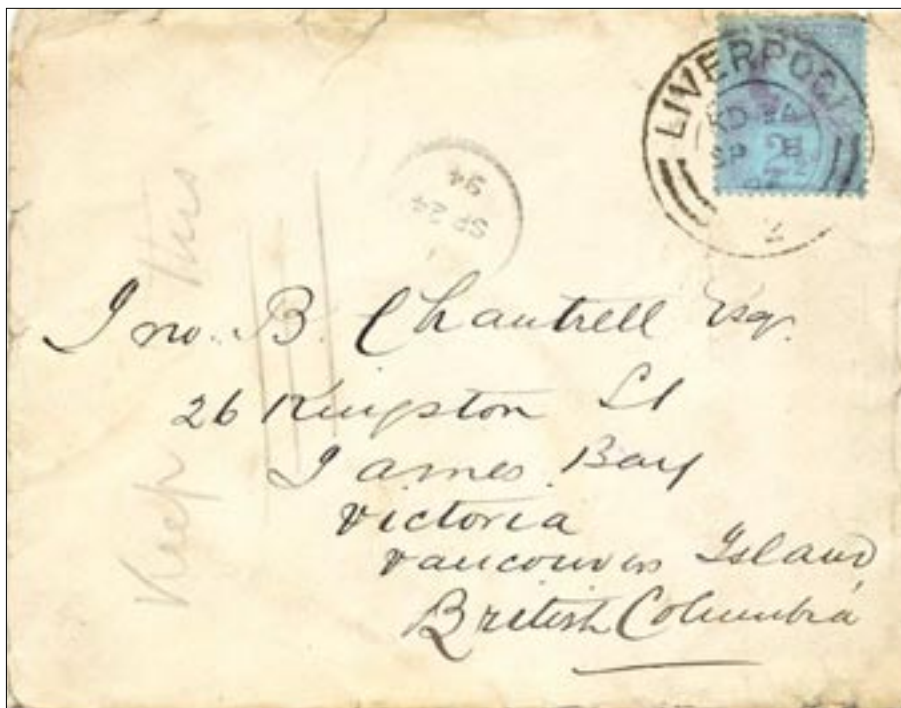 LIVERPOOL
SP 8
2½
SP 24
94
Keep this
Jno. B. Chantrell Esq.
26 Kingston St
James Bay
Victoria
Vancouver Island
British Columbia